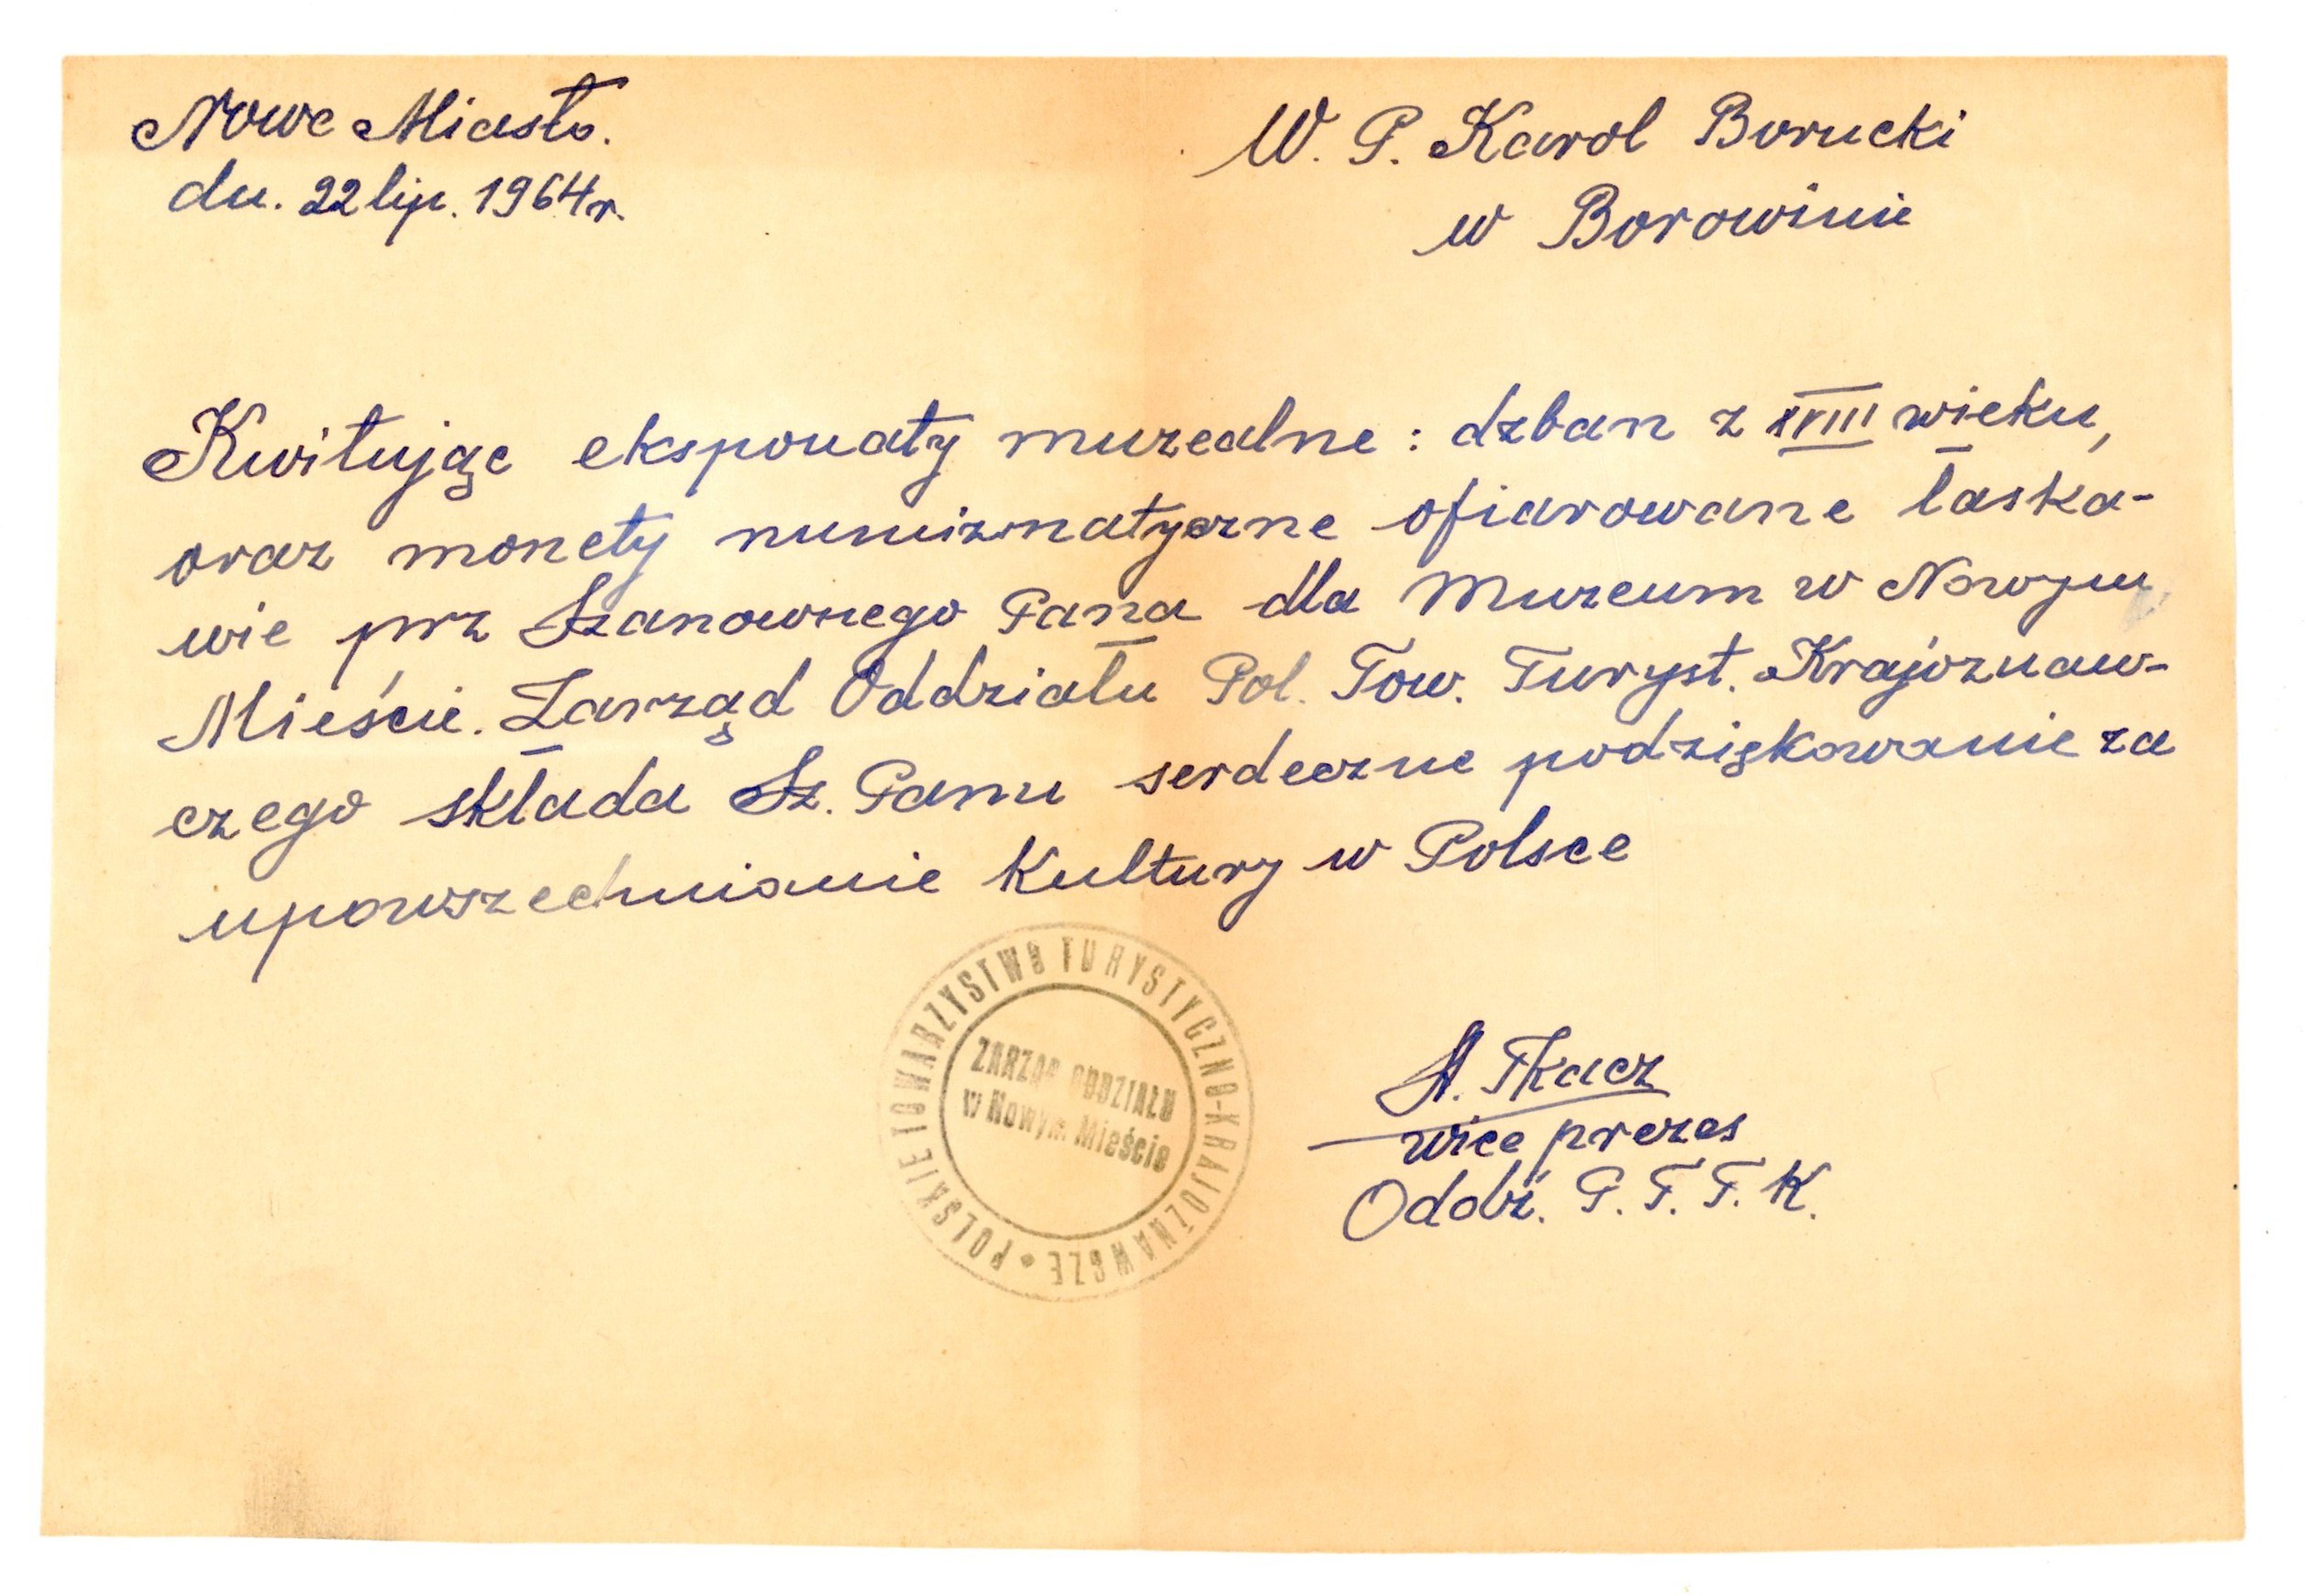 Nowe Miasto.
dn. 22 lip. 1964 r.
W. P. Karol Borucki
w Borowinie
Kwitując eksponaty muzealne: dzban z XVIII wieku,
oraz monety numizmatyczne ofiarowane łaska-
wie prz Szanownego Pana dla Muzeum w Nowym
Mieście. Zarząd Oddziału Pol. Tow. Turyst. Krajoznaw-
czego składa Sz. Panu serdeczne podziękowanie za
upowszechnianie Kultury w Polsce
POLSKIE TOWARZYSTWO TURYSTYCZNO-KRAJOZNAWCZE
ZARZĄD ODDZIAŁU
w Nowym Mieście
A. Tkacz
wice prezes
Oddz. P. T. T. K.